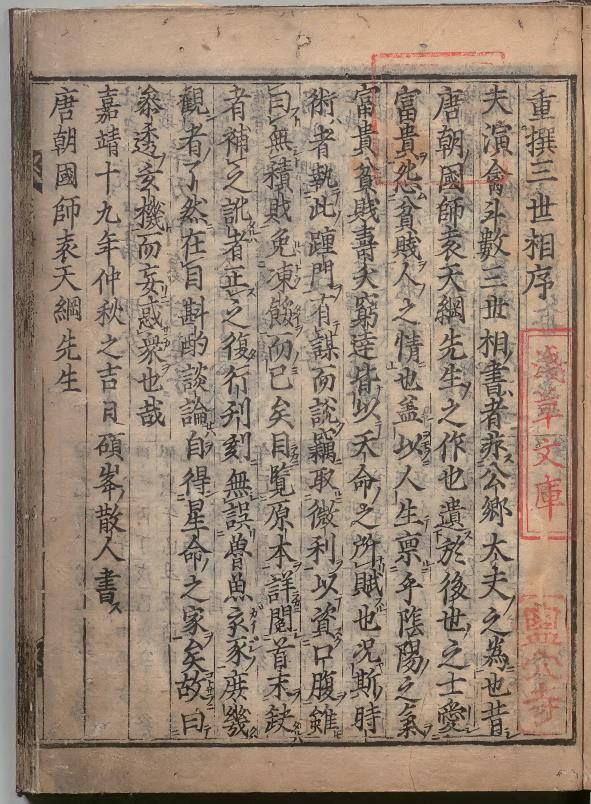 重撰三世相序
夫演禽斗數三世相書者亦公鄉太夫之爲也昔
唐朝國師袁天綱先生之作也遺於後世之士愛
富貴怨貧賤人之情也盖以人生禀乎陰陽之氣
富貴貧賤壽夭窮達皆以天命之所賦也况斯時
術者執此踵門有謀而說竊取微利以資口腹雖
曰無積財免凍餒而已矣目覧原本詳閱首末鈌
者補之訛者正之復行刋刻無誤魯魚亥豕庻幾
觀者了然在目斟酌談論自得星命之家矣故曰
叅透玄機而妄惑衆也哉
嘉靖十九年仲秋之吉日碩峯散人書
唐朝國師袁天綱先生
淺草文庫